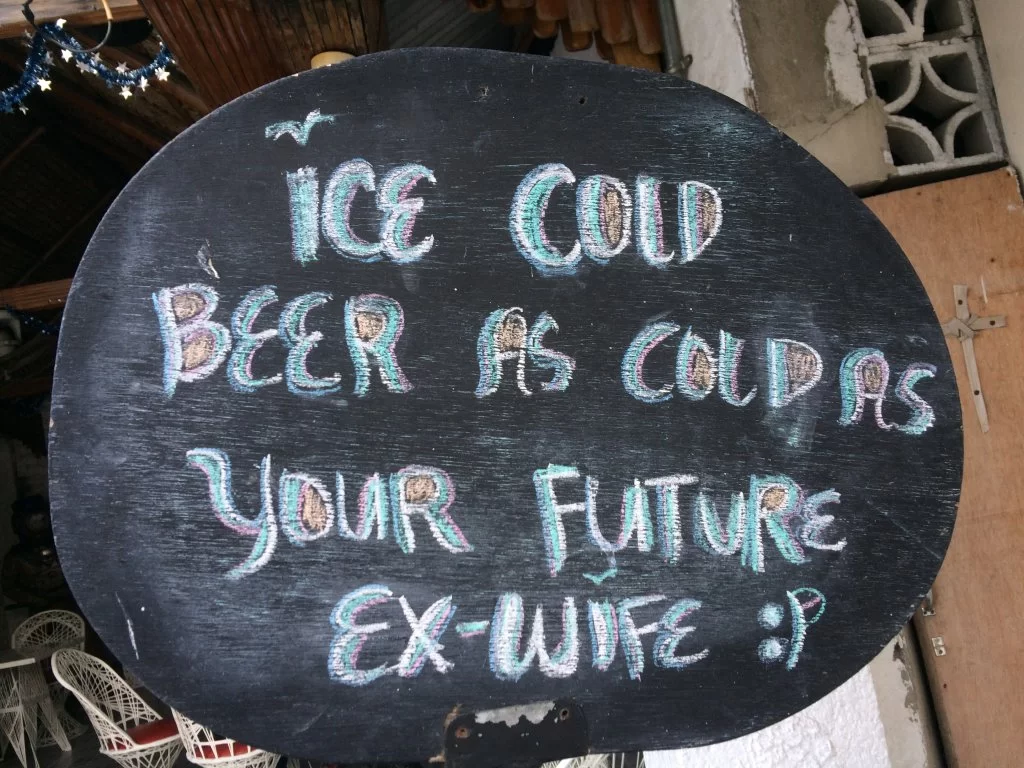 ICE COLD
BEER AS COLD AS
YOUR FUTURE
EX-WIFE :P